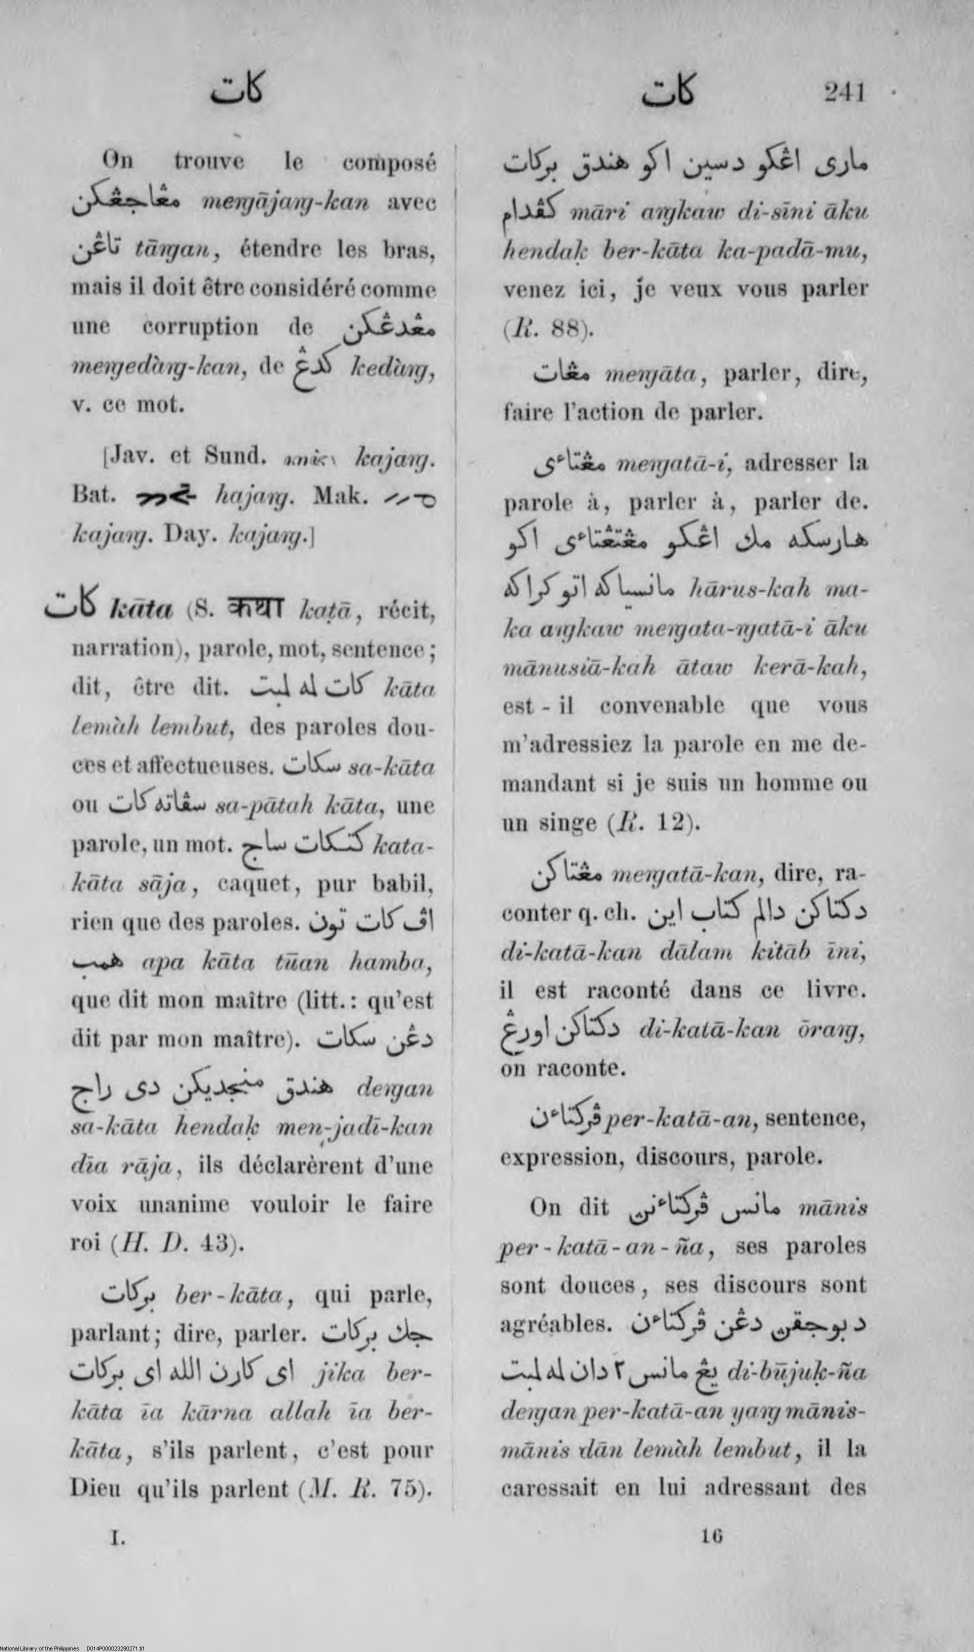 كات
كات 241
On trouve le composé
مڠاجڠكن meṅājaṅ-kan avec
تاڠن tāṅan, étendre les bras,
mais il doit être considéré comme
une corruption de مڠدڠكن
meṅedàṅ-kan, de كدڠ kedàṅ,
v. ce mot.
[Jav. et Sund. kajaṅ.
Bat. hajaṅ. Mak.
kajaṅ. Day. kajaṅ.]
كات kāta (S. कथा kaṭā, récit,
narration), parole, mot, sentence;
dit, être dit. كات له لمبت kāta
lemàh lembut, des paroles dou-
ces et affectueuses. سكات sa-kāta
ou سڤاته كات sa-pātah kāta, une
parole, un mot. كتكات ساج kata-
kāta sāja, caquet, pur babil,
rien que des paroles. اڤ كات تون
همب apa kāta tūan hamba,
que dit mon maître (litt.: qu'est
dit par mon maître). دڠن سكات
هندق منجديكن دى راج deṅan
sa-kāta hendaḳ men-jadī-kan
dīa rāja, ils déclarèrent d'une
voix unanime vouloir le faire
roi (H. D. 43).
بركات ber-kāta, qui parle,
parlant; dire, parler. جك بركات
اى كارن الله اى بركات jika ber-
kāta īa kārna allah īa ber-
kāta, s'ils parlent, c'est pour
Dieu qu'ils parlent (M. R. 75).
I.
مارى اڠكو دسين اكو هندق بركات
كڤدام māri aṅkaw di-sīni āku
hendaḳ ber-kāta ka-padā-mu,
venez ici, je veux vous parler
(R. 88).
مڠات meṅāta, parler, dire,
faire l'action de parler.
مڠتاءى meṅatā-i, adresser la
parole à, parler à, parler de.
هارسكه مك اڠكو مڠتڠتاءى اكو
مانسياكه اتو كراكه hārus-kah ma-
ka aṅkaw meṅata-ṅatā-i āku
mānusiā-kah ātaw kerā-kah,
est-il convenable que vous
m'adressiez la parole en me de-
mandant si je suis un homme ou
un singe (R. 12).
مڠتاكن meṅatā-kan, dire, ra-
conter q. ch. دكتاكن دالم كتاب اين
di-katā-kan dālam kitāb īni,
il est raconté dans ce livre.
دكتاكن اورڠ di-katā-kan ōraṅ,
on raconte.
ڤركتاءن per-katā-an, sentence,
expression, discours, parole.
On dit مانس ڤركتاءنن mānis
per-katā-an-ña, ses paroles
sont douces, ses discours sont
agréables. دبوجقن دڠن ڤركتاءن
يڠ مانس ٢ دان له لمبت di-būjuḳ-ña
deṅan per-katā-an yaṅ mānis-
mānis dān lemàh lembut, il la
caressait en lui adressant des
16
National Library of the Philippines